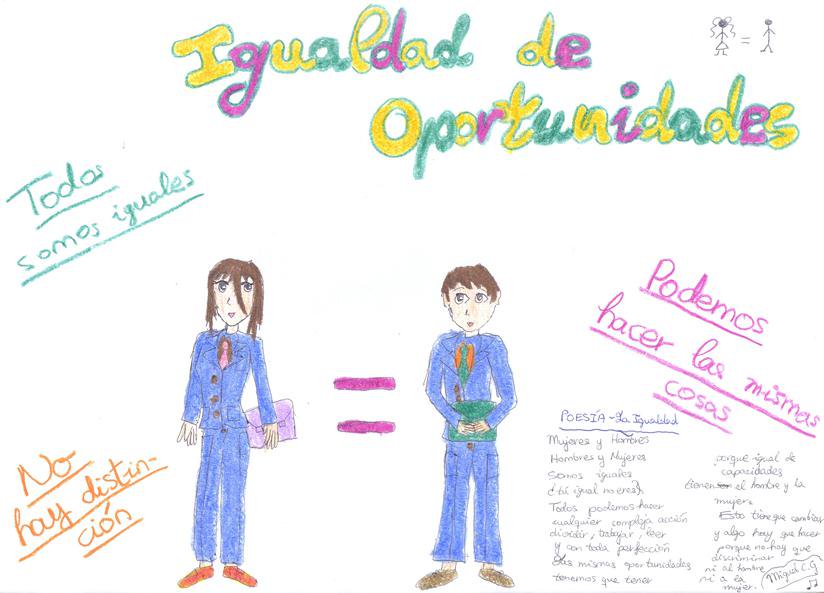 Igualdad de
Oportunidades
=
Todos
somos iguales
Podemos
hacer las mismas
cosas
=
No
hay distin-
ción
POESÍA - La Igualdad
Mujeres y Hombres
Hombres y Mujeres
Somos iguales
¿tú igual no eres?
Todos podemos hacer
cualquier compleja acción
dividir, trabajar, leer
y con toda perfección
las mismas oportunidades
tenemos que tener
porque igual de
capacidades
tienen el hombre y la
mujer.
Esto tiene que cambiar
y algo hay que hacer
porque no hay que
discriminar
ni al hombre
ni a la
mujer.
Miguel C.G